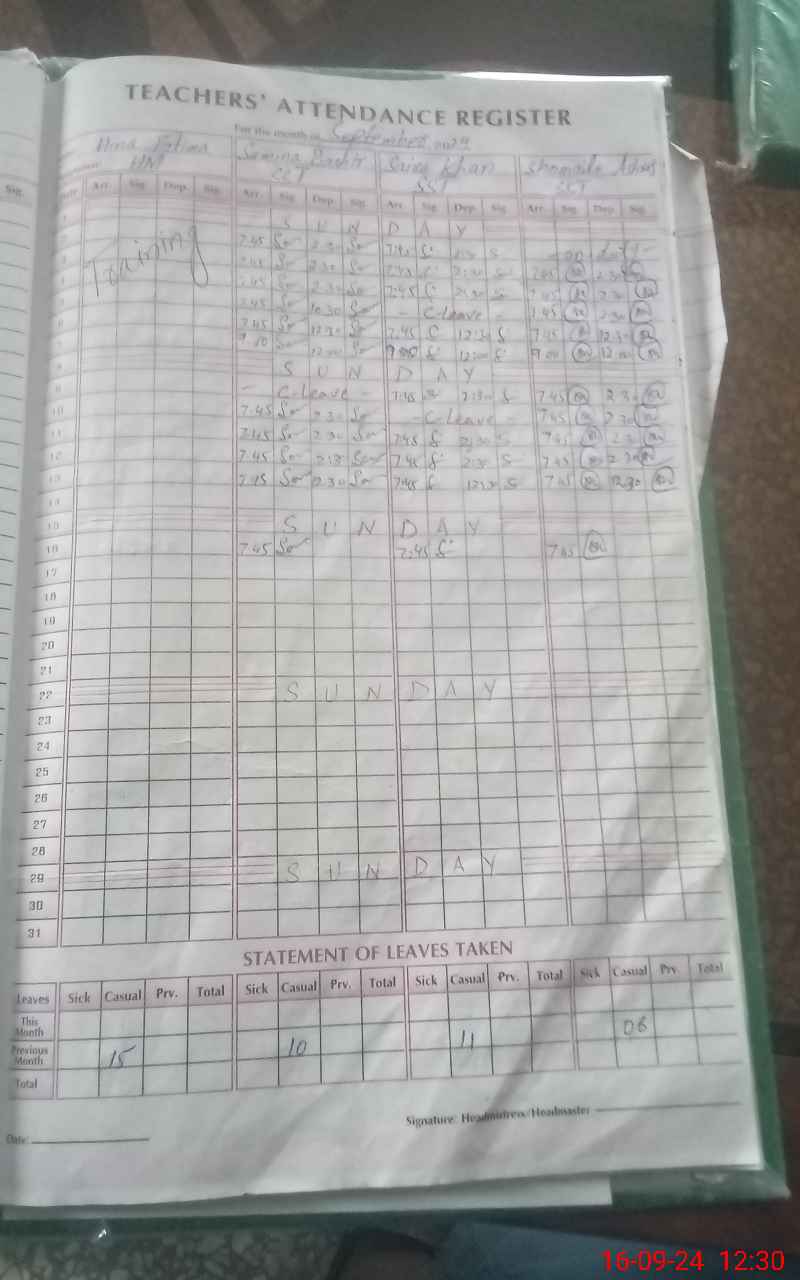 TEACHERS' ATTENDANCE REGISTER
For the month of September 2024
Hina Fatima Samina Bashir Saira Khan Shomaila
HM SST SST
Sig. Arr. Sig. Dep. Sig. Arr. Sig. Dep. Sig. Arr. Sig. Dep. Sig. Arr. Sig. Dep. Sig.
S U N D A Y
Training
7.45 2.30 7.45 2.30 on duty
7.45 2.30 7.45 2:30 7.45 2.30
7.45 2.30 7.45 2:30 7.45 2.30
7.45 10.30 - C-leave - 7.45 2.30
7.45 12.30 7.45 12:30 7.45 12.30
9.00 12.00 9.00 12:00 9.00 12.00
S U N D A Y
9 - C-leave - 7.45 2:30 7.45 2.30
10 7.45 2.30 - C-leave - 7.45 2.30
11 7.45 2.30 7.45 2:30 7.45 2.30
12 7.45 2:30 7.45 2:30 7.45 2.30
13 7.45 2.30 7.45 12:30 7.45 12.30
14
15 S U N D A Y
16 7.45 7.45 7.45
17
18
19
20
21
22 S U N D A Y
23
24
25
26
27
28
29 S U N D A Y
30
31
STATEMENT OF LEAVES TAKEN
Leaves Sick Casual Prv. Total Sick Casual Prv. Total Sick Casual Prv. Total Sick Casual Prv. Total
This Month
Previous Month 15 10 11 06
Total
Signature: Headmistress/Headmaster
Date:
16-09-24 12:30